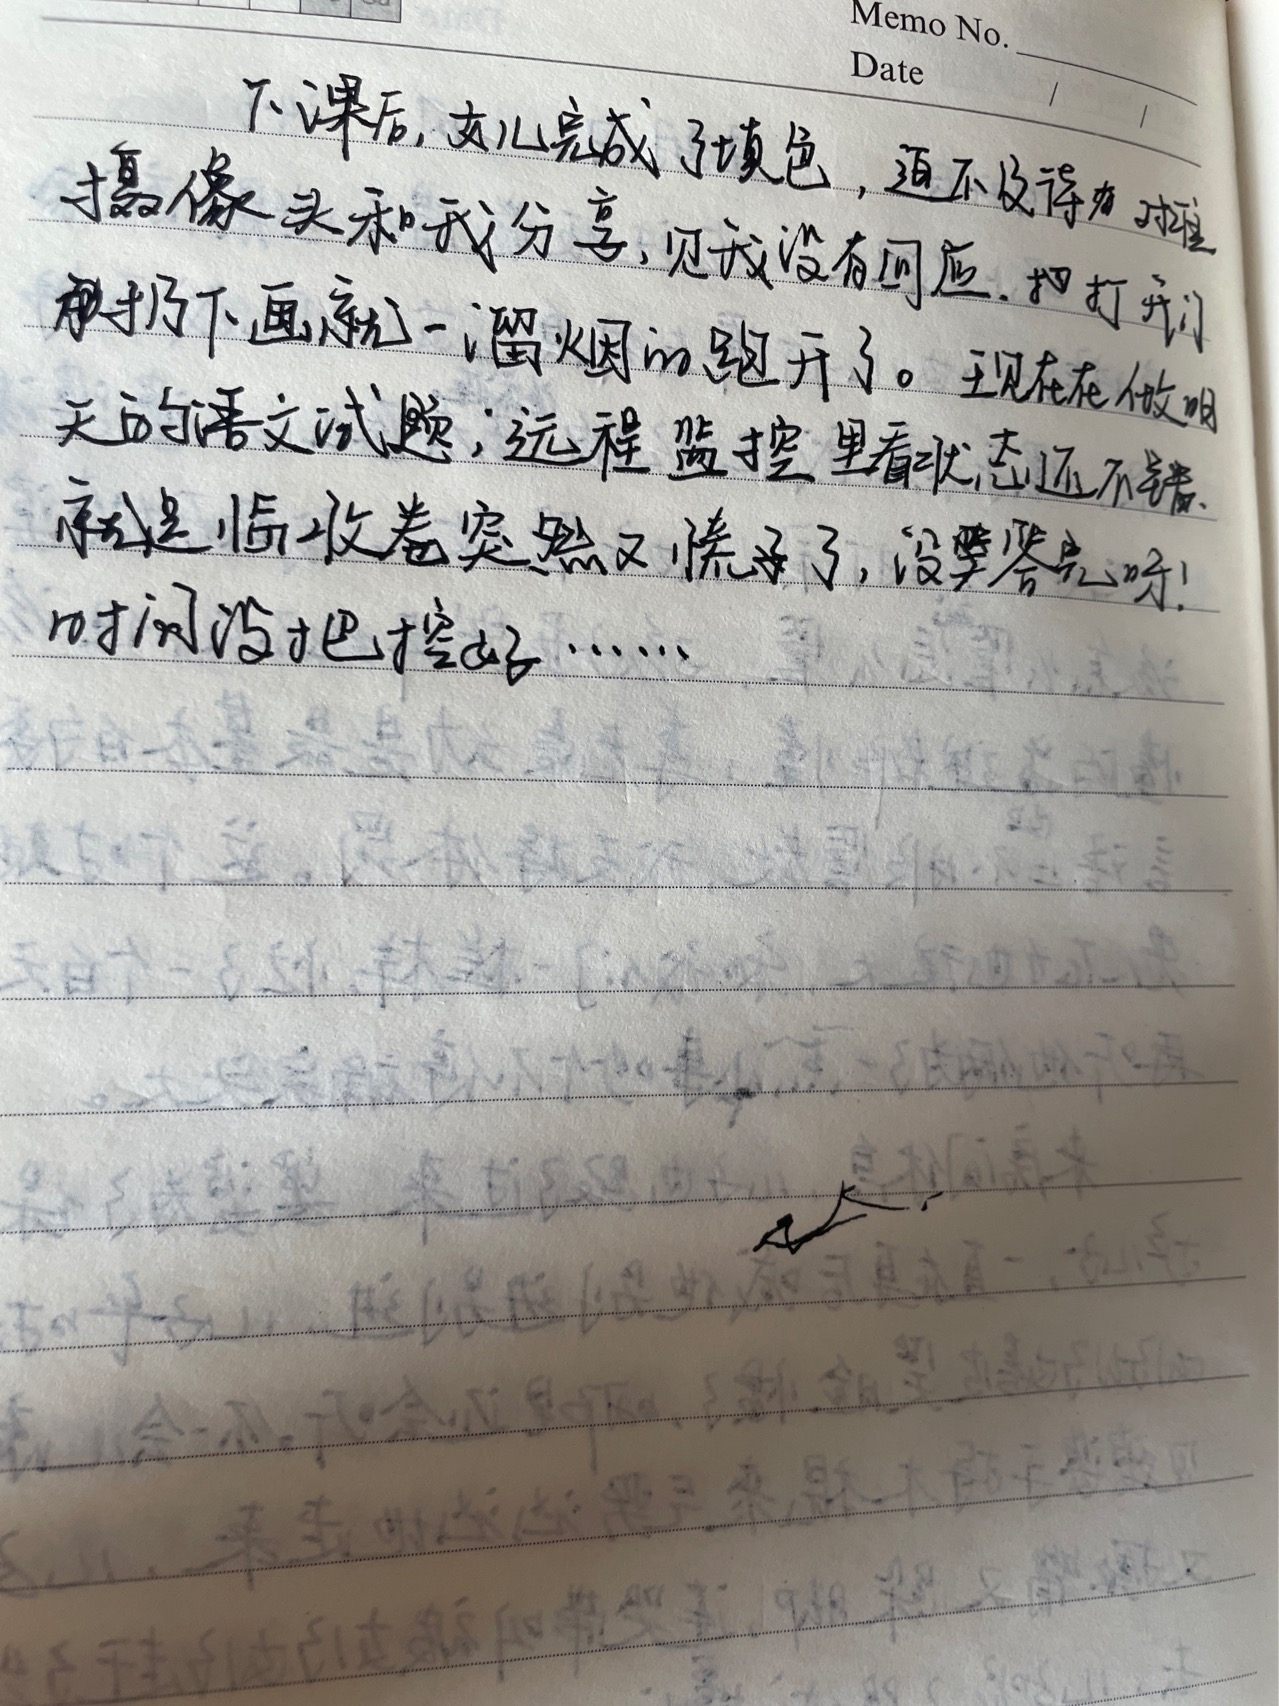 Memo No.
Date / /
下课后,女儿完成了填色,迫不及待的对准
摄像头和我分享,见我没有回应.把打开门
扔下画就一溜烟的跑开了。现在在做明
天的语文试题;远程监控里看状态还不错.
就是临收卷突然又慌了,没答完呀!
时间没把控好……